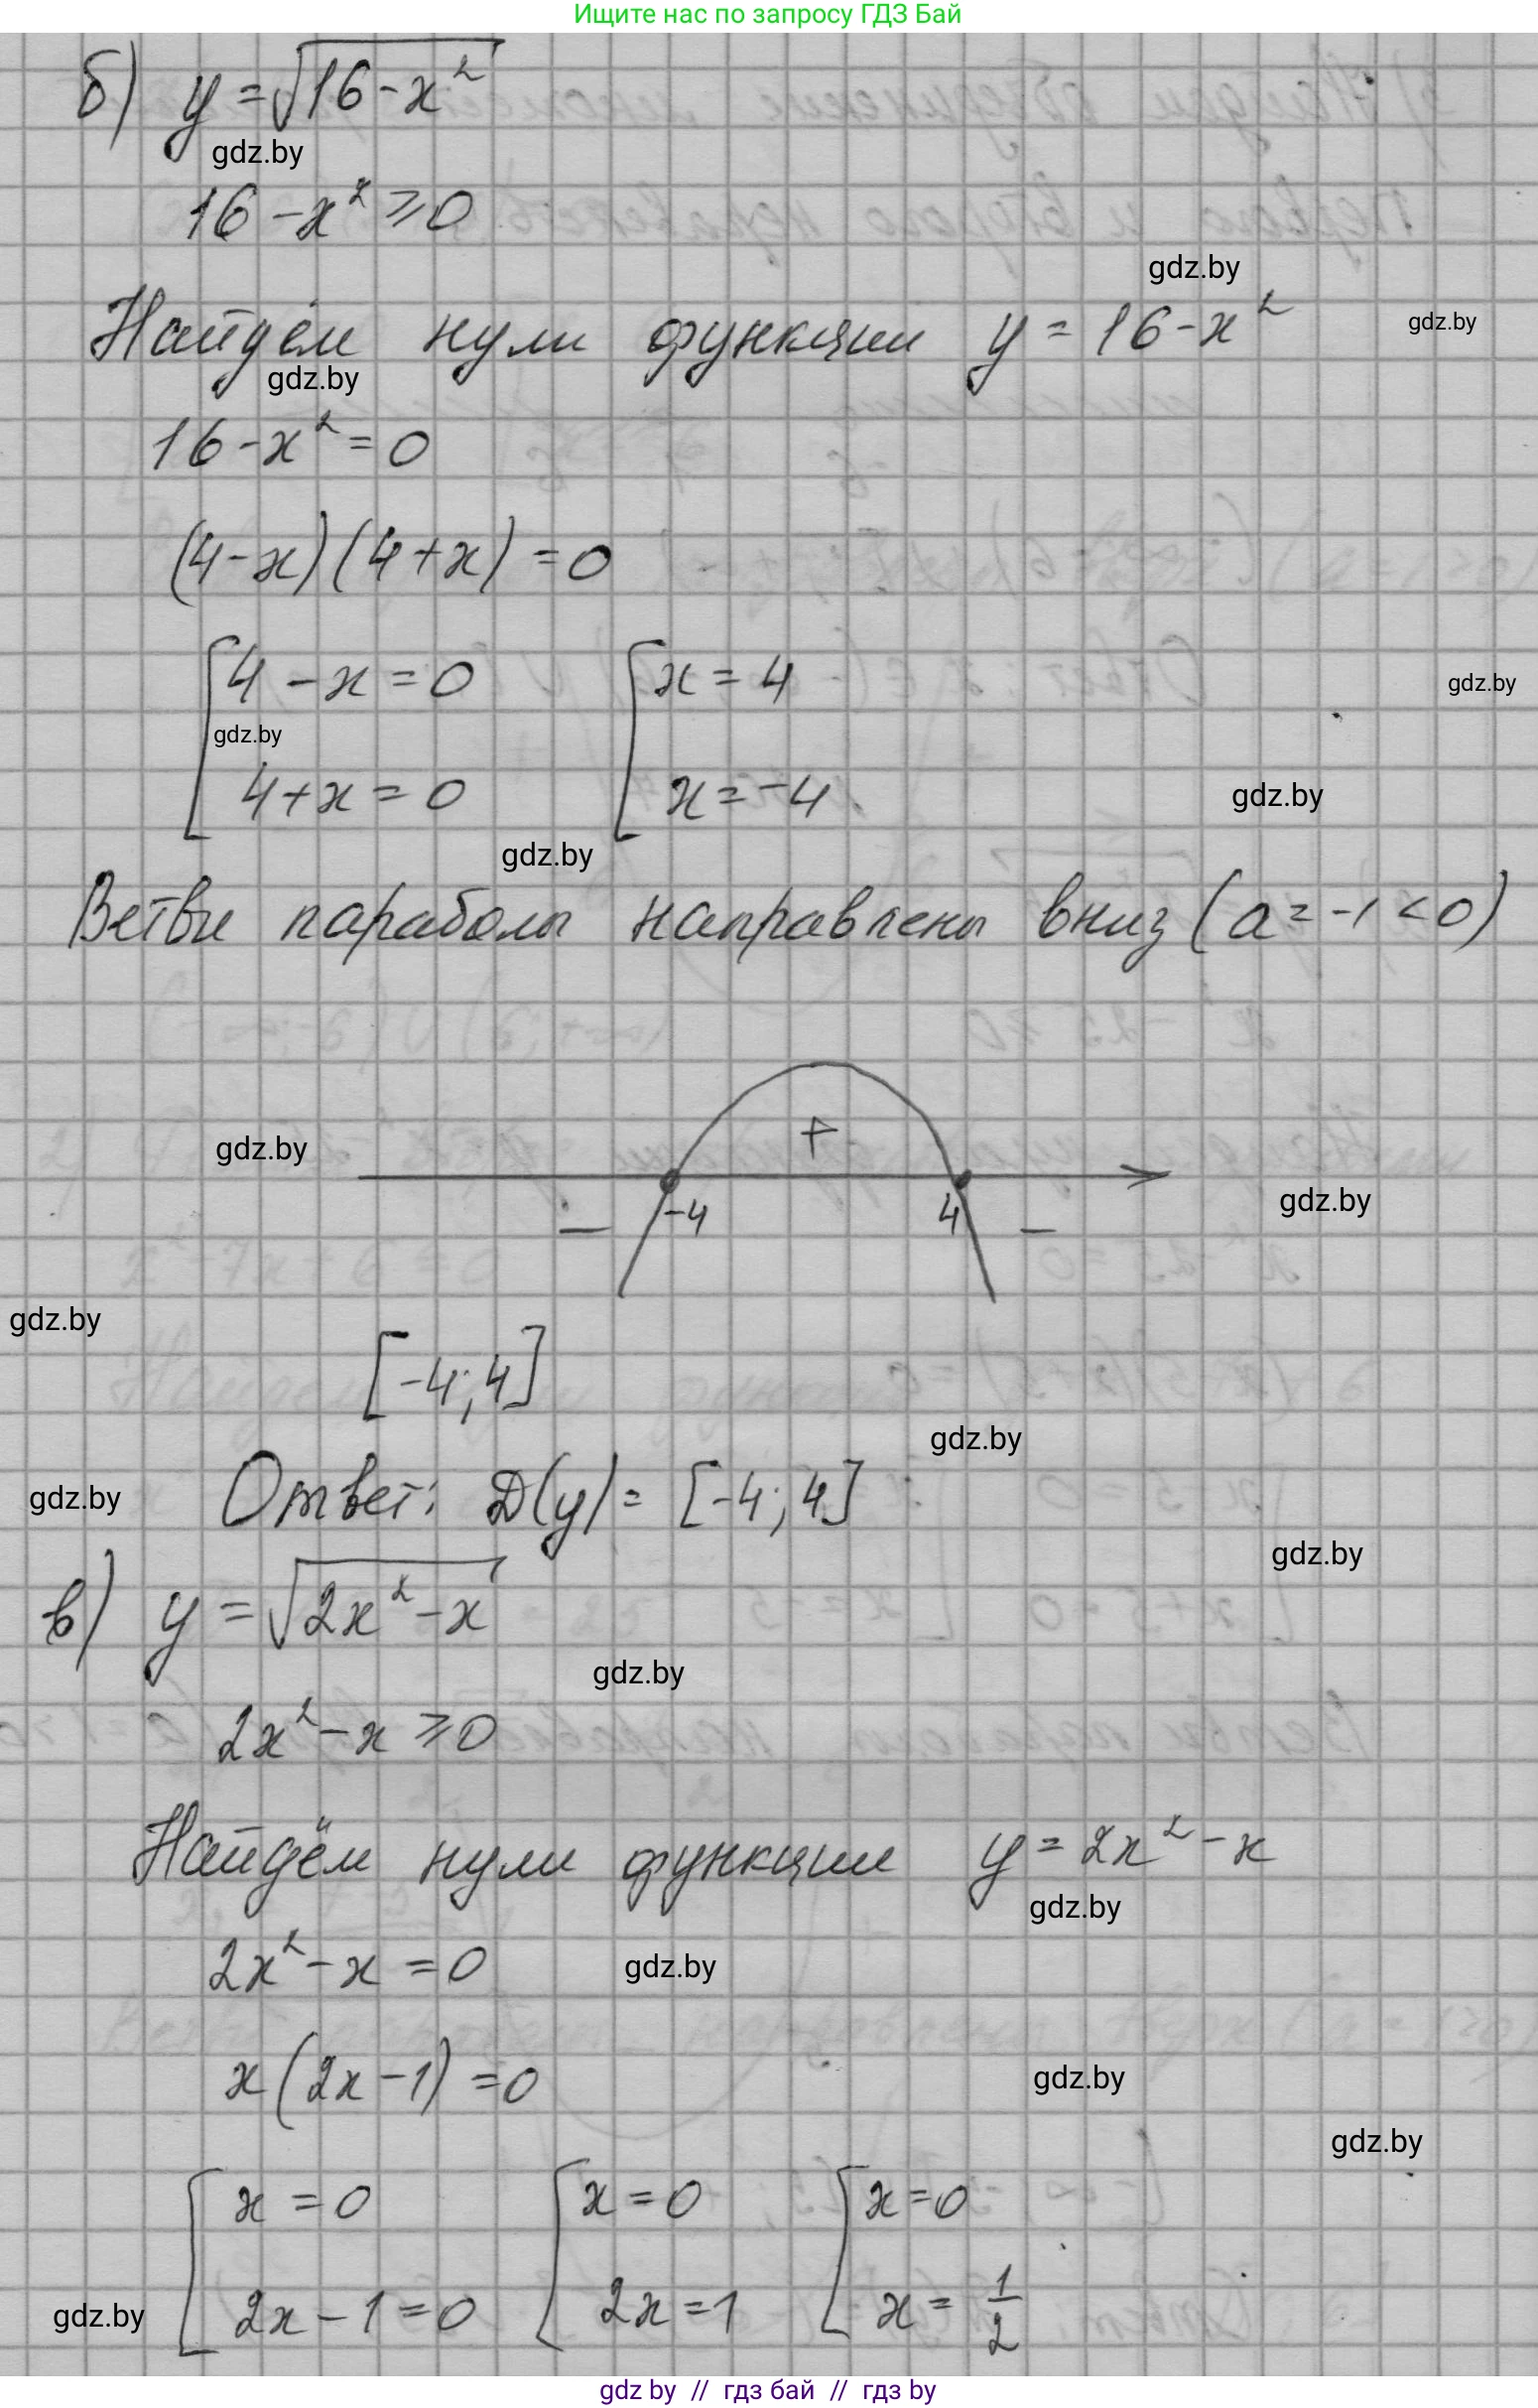 Ищите нас по запросу ГДЗ Бай
б) y = √(16-x²)
gdz.by
16-x² ≥ 0
gdz.by
Найдём нули функции y = 16-x²
gdz.by
gdz.by
16-x² = 0
(4-x)(4+x) = 0
[4-x = 0 [x = 4
gdz.by
gdz.by
4+x = 0 x = -4
gdz.by
gdz.by
Ветви параболы направлены вниз (a = -1 < 0)
+
gdz.by
-4 4
gdz.by
− −
gdz.by
[-4; 4]
gdz.by
Ответ: D(y) = [-4; 4]
gdz.by
gdz.by
в) y = √(2x²-x)
gdz.by
2x²-x ≥ 0
Найдём нули функции y = 2x²-x
gdz.by
2x²-x = 0
gdz.by
x(2x-1) = 0
gdz.by
gdz.by
[x = 0 [x = 0 [x = 0
2x-1 = 0 2x = 1 x = 1/2
gdz.by
gdz by // гдз бай // гдз by